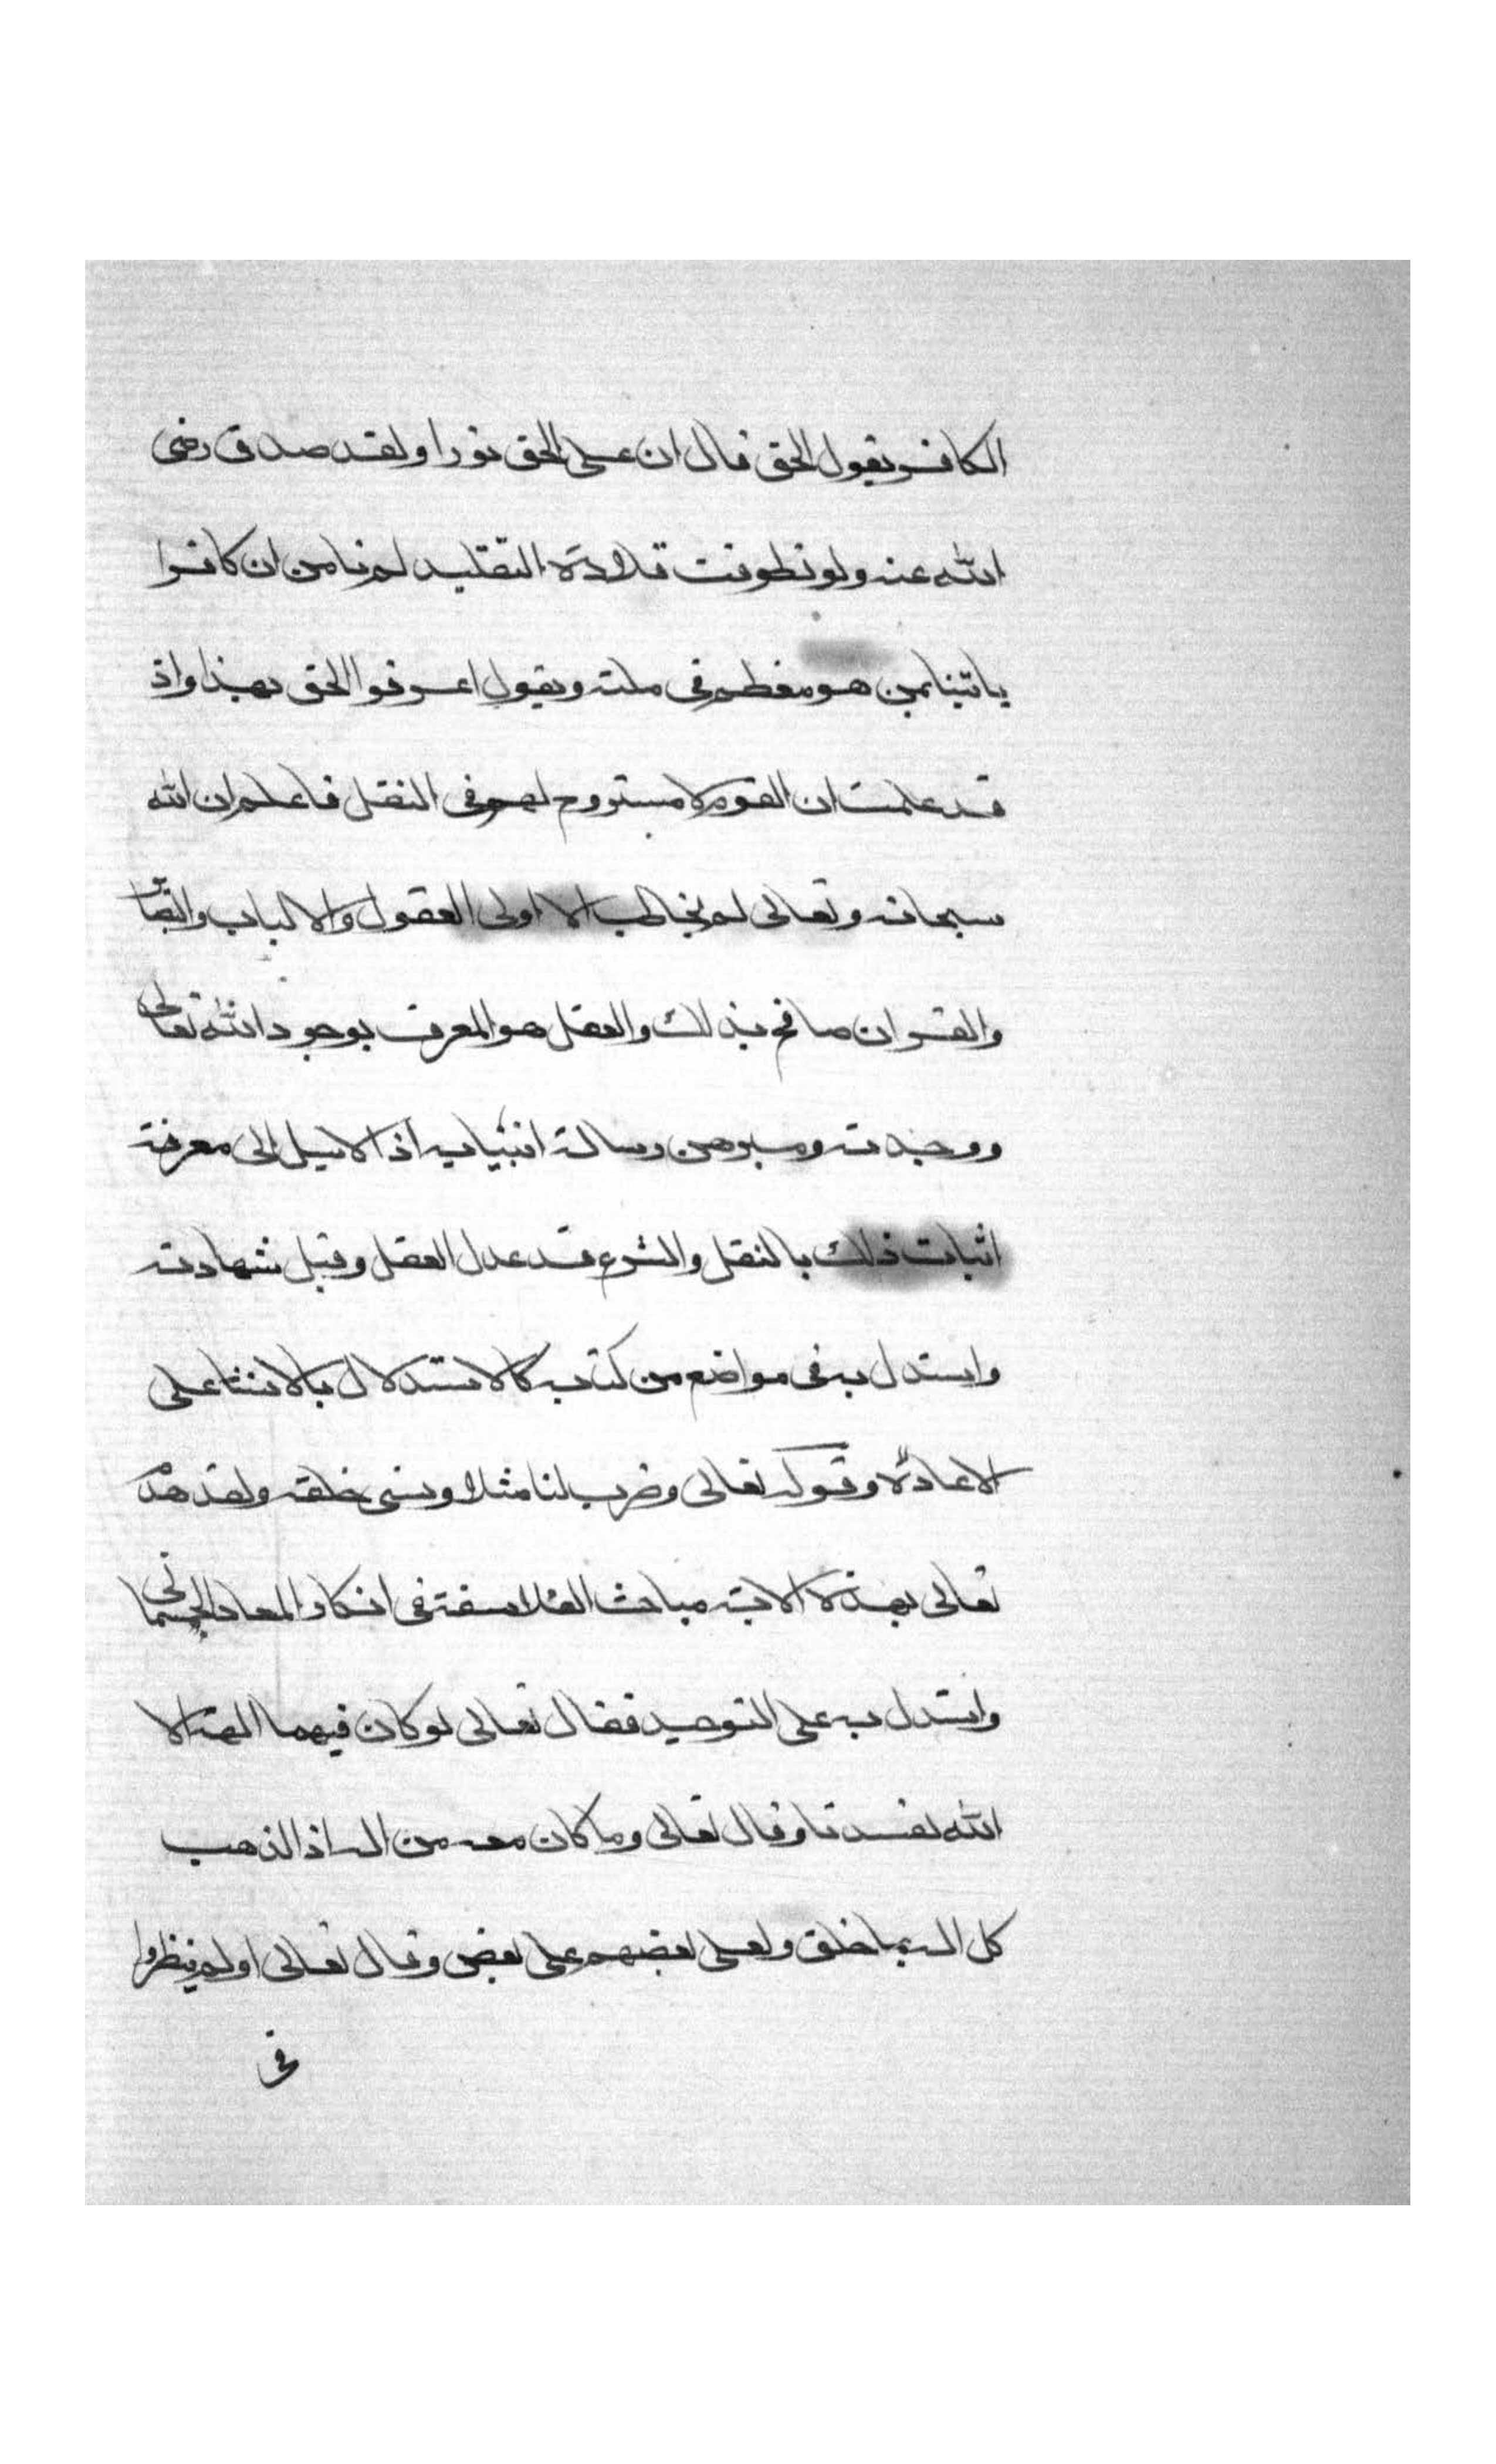 الكافر يقول الحق قال ان على الحق نورا ولقد صدق رضى
الله عنه ولو تطوقت قلادة التقليد لم نامن ان كافرا
ياتينا بمن هو معظم فى ملته ويقول اعرفوا الحق بهذا واذ
قد علمت ان القوم لا مستروح لهم فى النقل فاعلم ان الله
سبحانه وتعالى لم يخاطب الا اولى العقول والالباب والبصائر
والقران طافح بذلك والعقل هو المعرف بوجود الله تعالى
ووحدته ومبرهن رسالة انبيايه اذ لا سبيل الى معرفة
اثبات ذلك بالنقل والشرع قد عدل العقل وقبل شهادته
واستدل به فى مواضع من كتابه كالاستدلال بالانشا على
الاعادة وقوله تعالى وضرب لنا مثلا ونسى خلقه ولقد هدّ
تعالى بهذه الاية مباحث الفلاسفة فى انكار المعاد الجسمانى
واستدل به على التوحيد فقال تعالى لو كان فيهما الهة الا
الله لفسدتا وقال تعالى وما كان معه من اله اذا لذهب
كل اله بما خلق ولعلى بعضهم على بعض وقال تعالى اولم ينظروا
فى